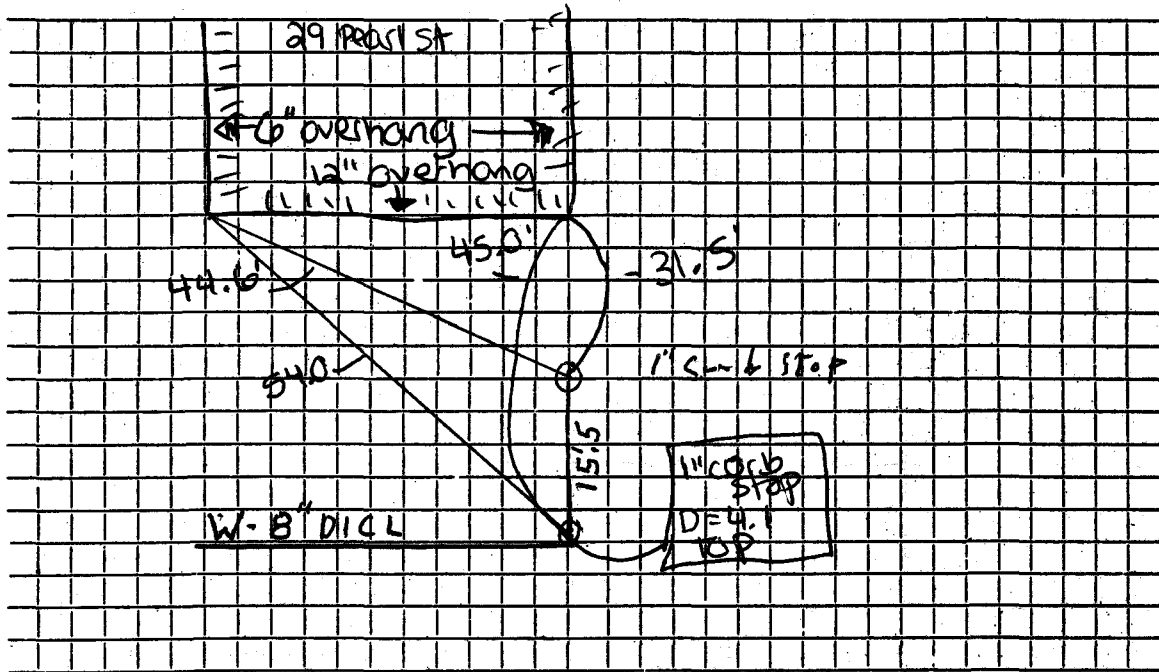 29 Pearl St
6" overhang
12" overhang
45.0'
31.5'
44.6'
54.0
1" curb stop
15.5
1" corb
stop
D=4.1
TOP
W-8" DICL